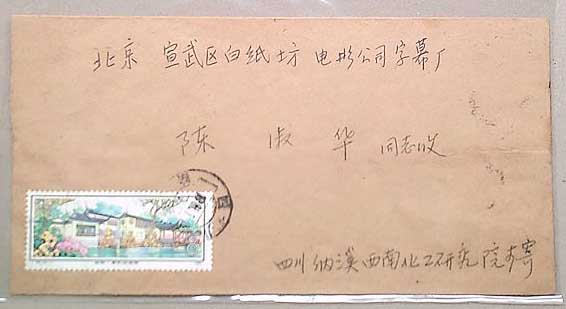 北京 宣武区白纸坊 电影公司字幕厂
陈淑华 同志收
四川纳溪西南化工研究院 寄